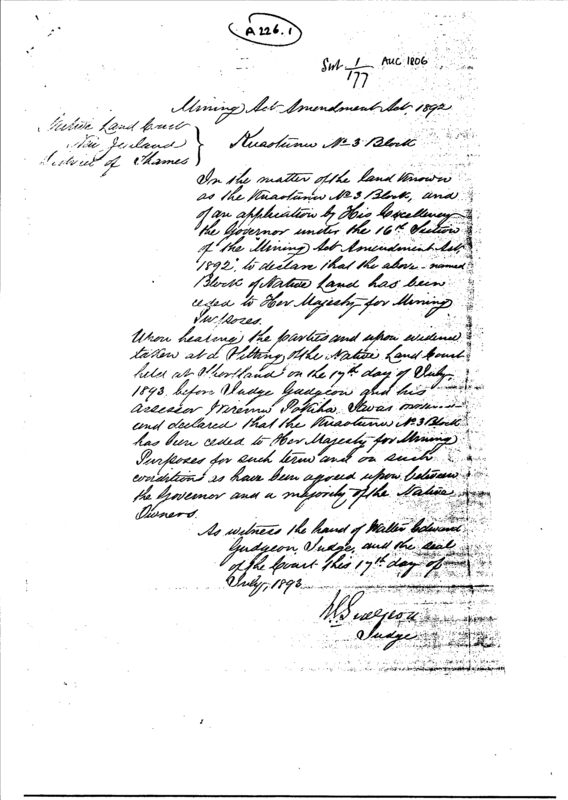 A 226.1
1/177 AUC 1806
Mining Act Amendment Act, 1892
Native Land Court
New Zealand
District of Thames
Kuaotunu No 3 Block
In the matter of the land known
as the Kuaotunu No 3 Block, and
of an application by His Excellency
the Governor under the 16th Section
of the Mining Act Amendment Act,
1892, to declare that the above-named
Block of Native Land has been
ceded to Her Majesty for Mining
Purposes.
Upon hearing the parties and upon evidence
taken at a Sitting of the Native Land Court
held at Shortland on the 17th day of July,
1893 before Judge Gudgeon and his
assessor It was
and declared that the Kuaotunu No 3 Block
has been ceded to Her Majesty for Mining
Purposes for such term and on such
conditions as have been agreed upon between
the Governor and a majority of the Native
Owners.
As witness the hand of Walter Edward
Gudgeon, Judge, and the seal
of the Court this 17th day of
July, 1893
W Gudgeon
Judge